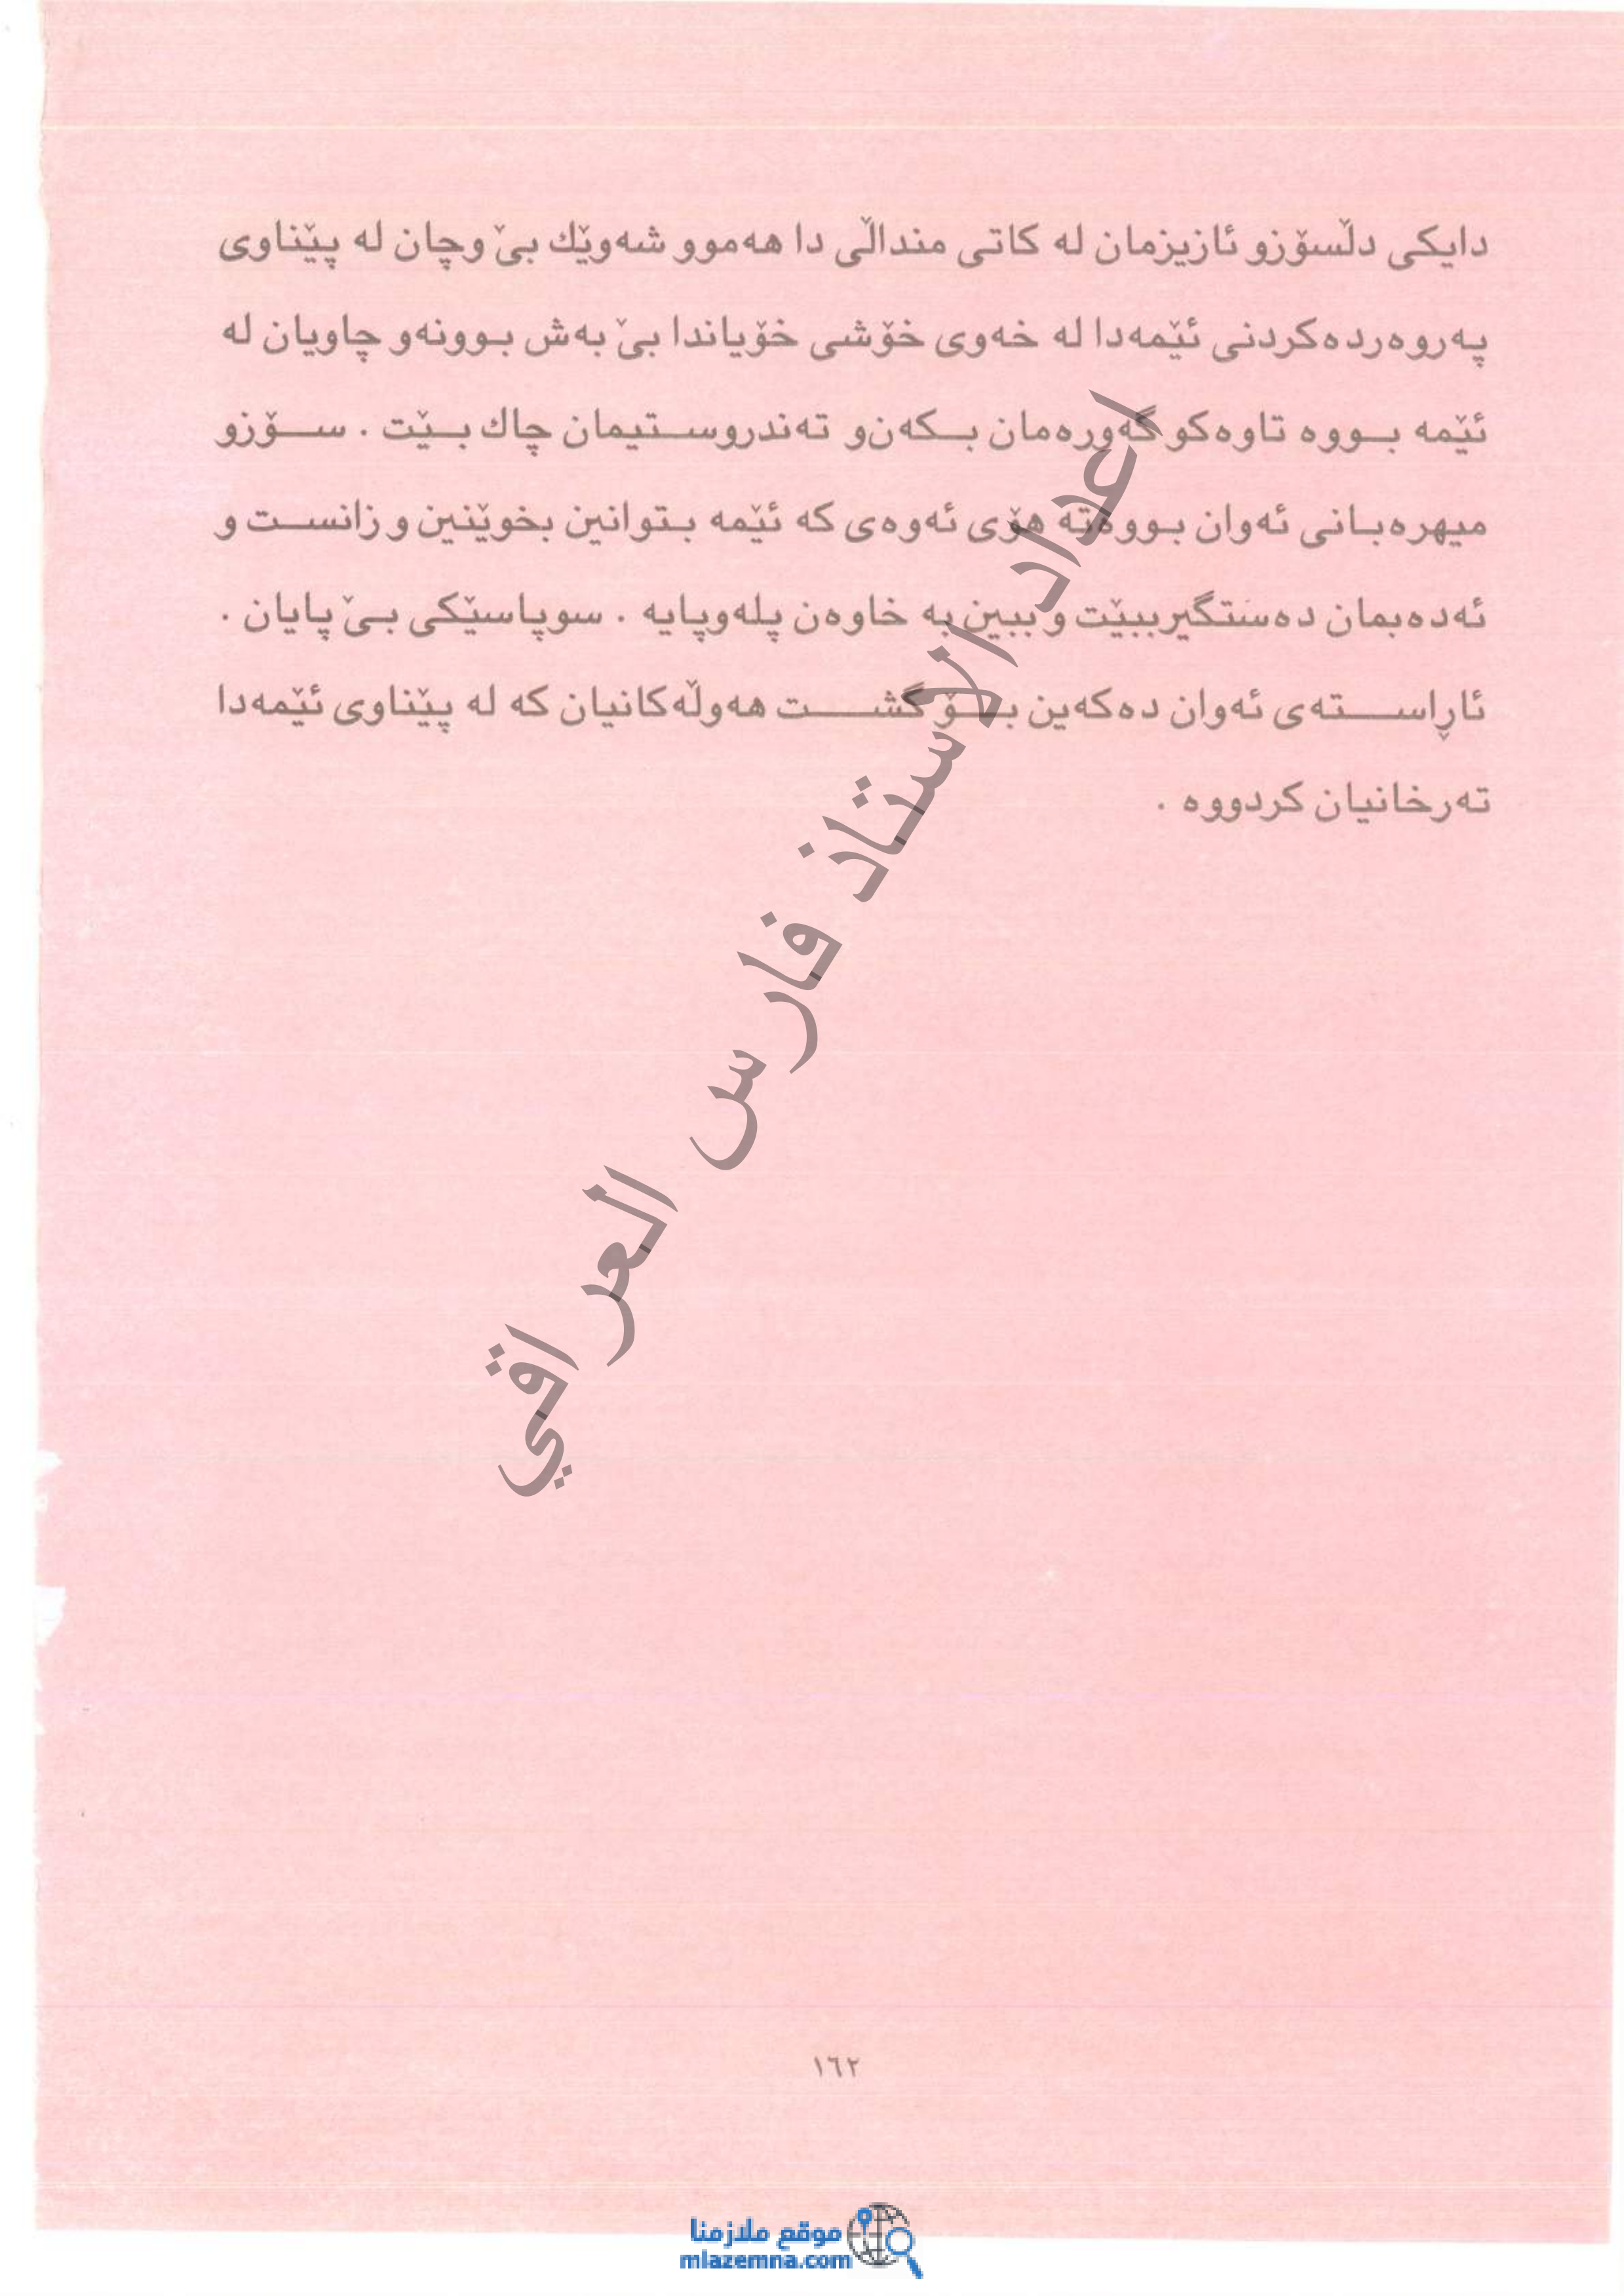 دایکی دڵسۆزو ئازیزمان لە کاتی منداڵی دا هەموو شەوێك بێ وچان لە پێناوی
پەروەردەکردنی ئێمەدا لە خەوی خۆشی خۆیاندا بێ بەش بوونەو چاویان لە
ئێمە بووە تاوەکو گەورەمان بکەن‌و تەندروستیمان چاك بێت . سۆزو
میهرەبانی ئەوان بووەتە هۆی ئەوەی کە ئێمە بتوانین بخوێنین و زانست و
ئەدەبمان دەستگیرببێت و ببین بە خاوەن پلەوپایە . سوپاسێکی بێ پایان .
ئاڕاستەی ئەوان دەکەین بۆ گشت هەوڵەکانیان کە لە پێناوی ئێمەدا
تەرخانیان کردووە .
اعداد الاستاذ فارس العراقي
١٦٢
موقع ملازمنا
mlazemna.com